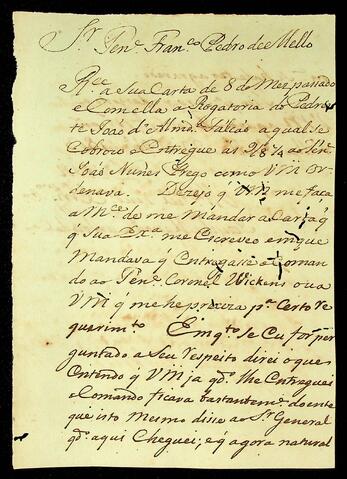 Sr. Tene. Franco. Pedro de Mello
Rce. a Sua Carta de 8 do Mez passado
e Com ella a Rogatoria do Pedres
te João d'Almda. Falcão a qual se
Cobrou e Entregue as ao Tene.
João Nunes Grego como VM or-
denava. Dezejo q VM me faça
a Mce. de me Mandar a Carta q
q Sua Exa. me Escreveo em que
Mandava q Entregasse o Coman
do ao Tene. Coronel Wickens ou a
VM q me he preciza pa. Certo Re
querimto. Emqto. se Eu for per
guntado a Seu Respeito direi o que
Entendo q VM ja qdo. lhe Entreguei
o Comando ficava bastanteme. doente
que isto mesmo disse ao Sr. General
qdo. aqui Cheguei, e q agora natural